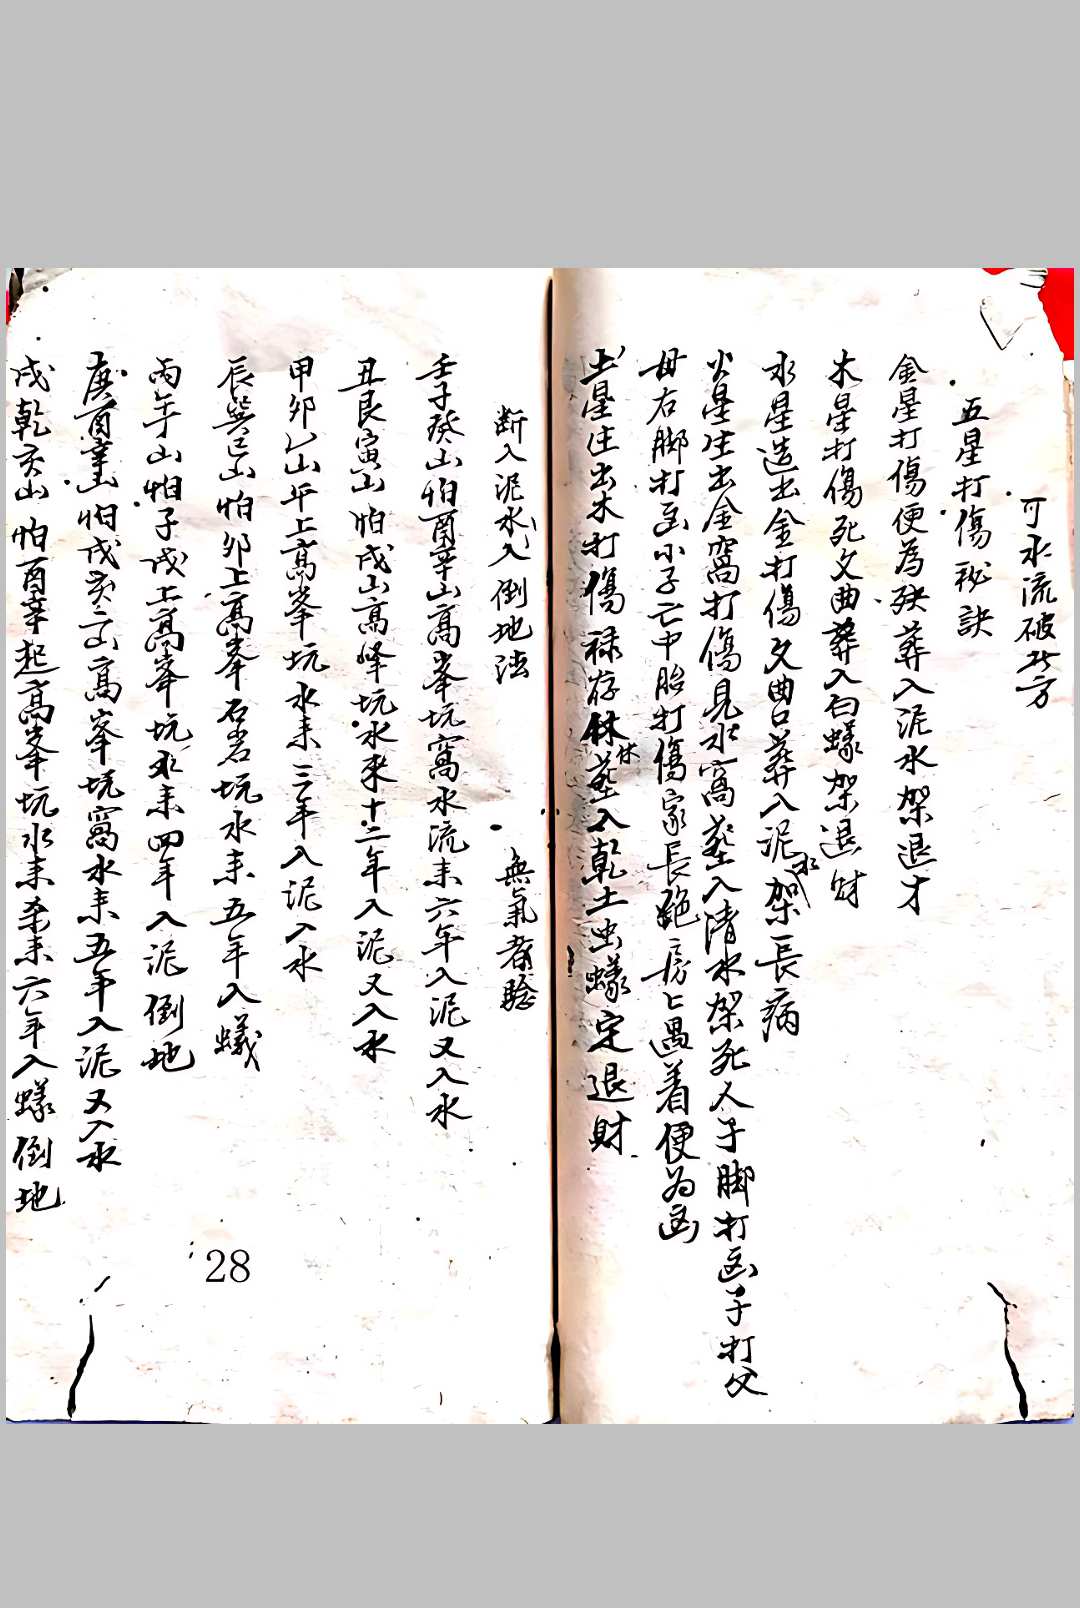 可水流破此方
五星打傷秘訣
金星打傷便為殃葬入泥水架退才
木星打傷死文曲葬入白蟻架退財
水星造出金打傷文曲葬入泥水架長病
火星生出金窩打傷見水窩葬入清水架死人子脚打凶子打父
母右脚打凶小子亡中胎打傷家長絶房上遇着便為凶
土星庄出木打傷禄存休葬入乾土虫蟻定退財
断入泥水入倒地法 無氣者驗
壬子癸山怕酉辛山高峯坑窩水流来六年入泥又入水
丑艮寅山怕戌山高峰坑水来十二年入泥又入水
甲卯乙山午上高峯坑水来三年入泥入水
辰巽巳山怕卯上高峯石岩坑水来五年入蟻
丙午山怕子戌上高峯坑水来四年入泥倒地
庚酉辛山怕戌亥二山高峯坑窩水来五年入泥又入水
戌乾亥山怕酉辛起高峯坑水来杀来六年入蟻倒地
28